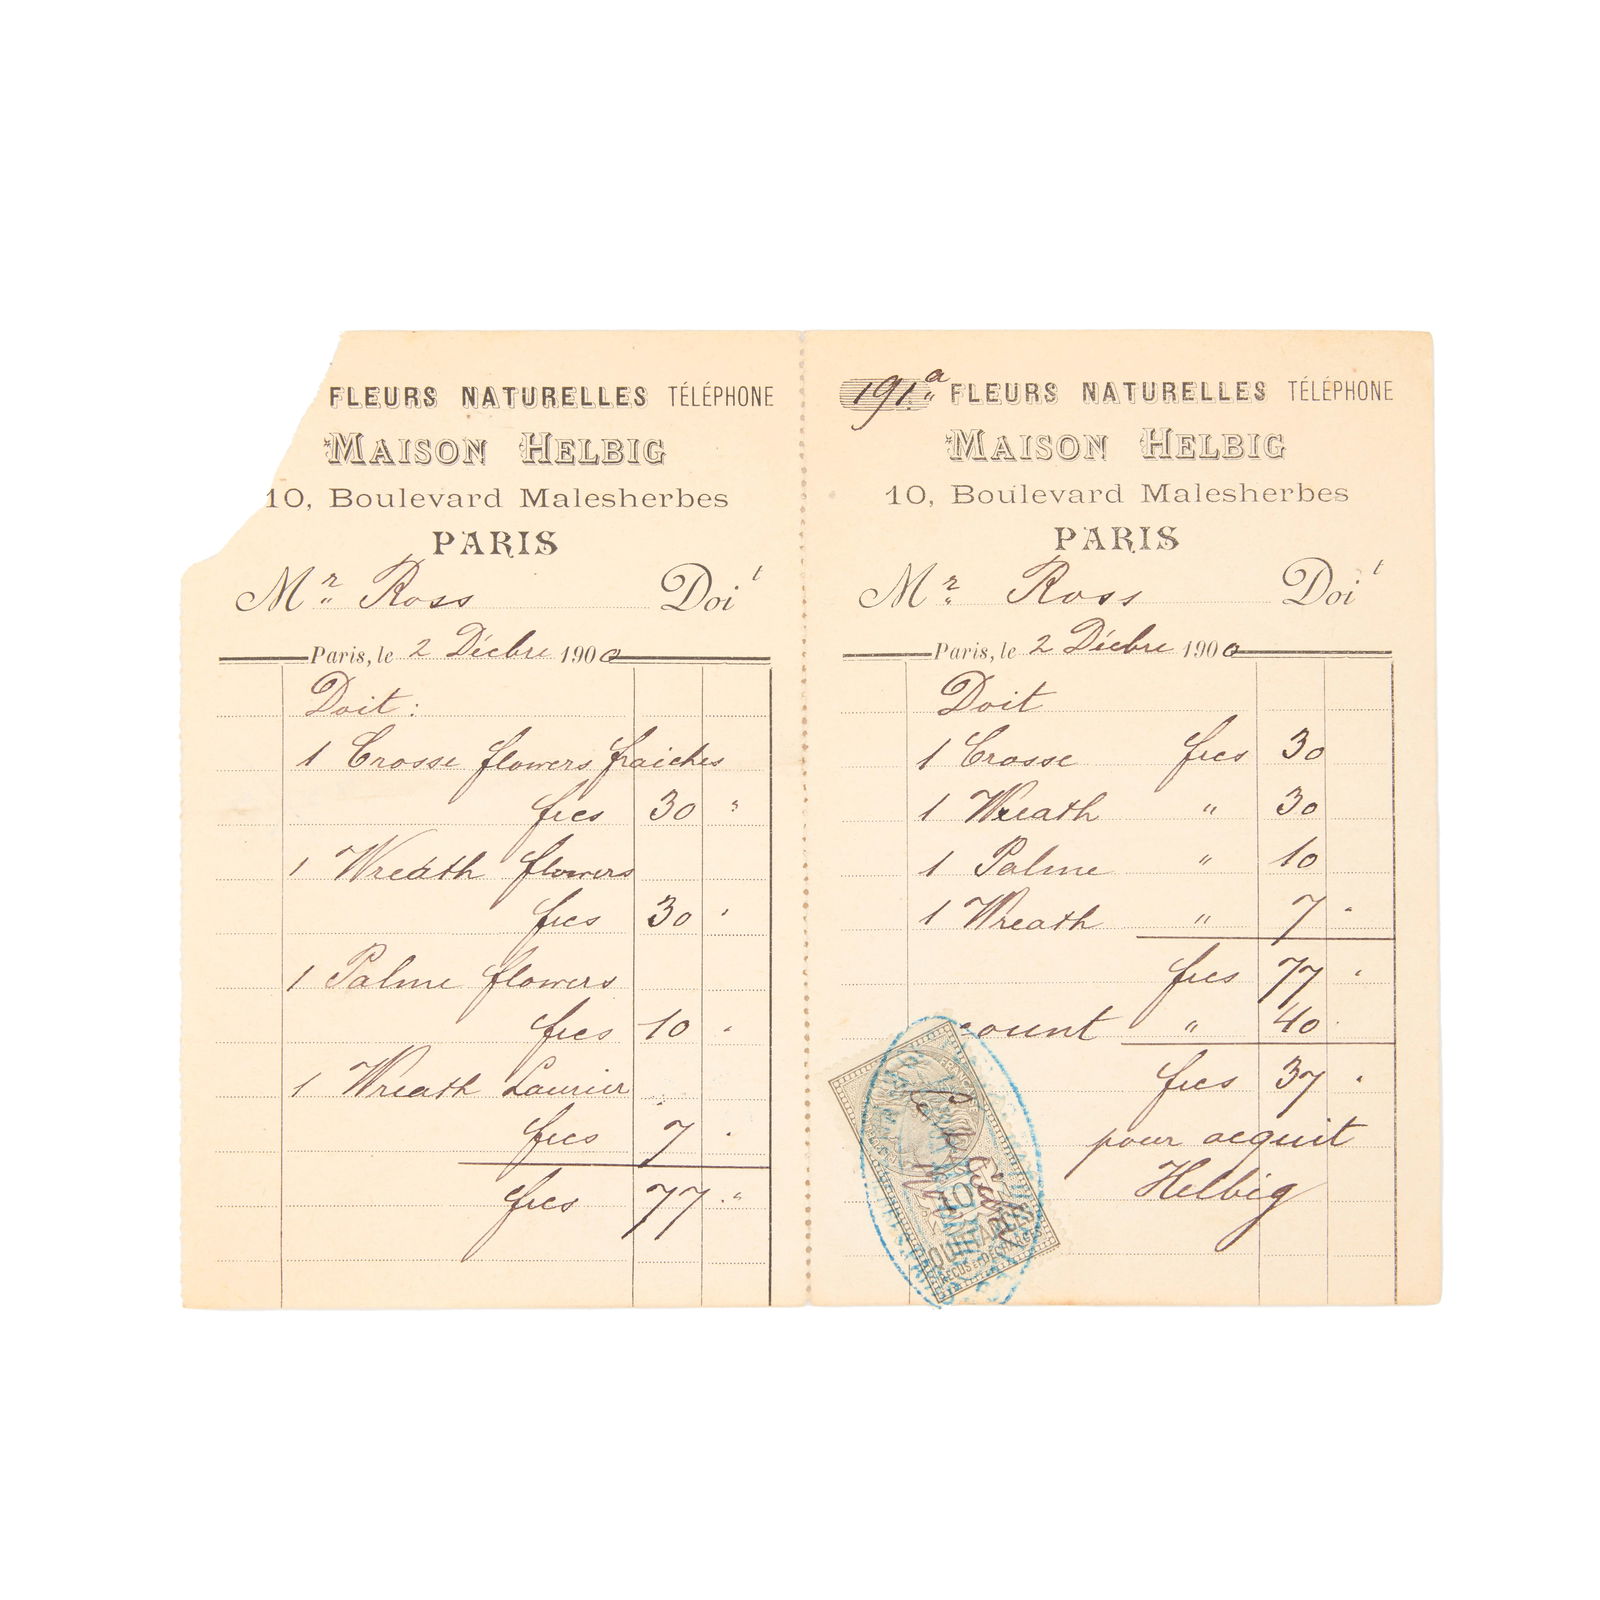 FLEURS NATURELLES TÉLÉPHONE
MAISON HELBIG
10, Boulevard Malesherbes
PARIS
Mr Ross Doit
Paris, le 2 Décbre 1900
Doit:
1 Crosse flowers fraiches
frcs 30 "
1 Wreath flowers
frcs 30 "
1 Palme flowers
frcs 10 "
1 Wreath Laurier
frcs 7 "
frcs 77 "
191.a FLEURS NATURELLES TÉLÉPHONE
MAISON HELBIG
10, Boulevard Malesherbes
PARIS
Mr Ross Doit
Paris, le 2 Décbre 1900
Doit
1 Crosse frcs 30
1 Wreath " 30
1 Palme " 10
1 Wreath " 7 "
frcs 77 "
count " 40
frcs 37 "
pour acquit
Helbig
10
QUITTANCES
REÇUS ET DÉCHARGES